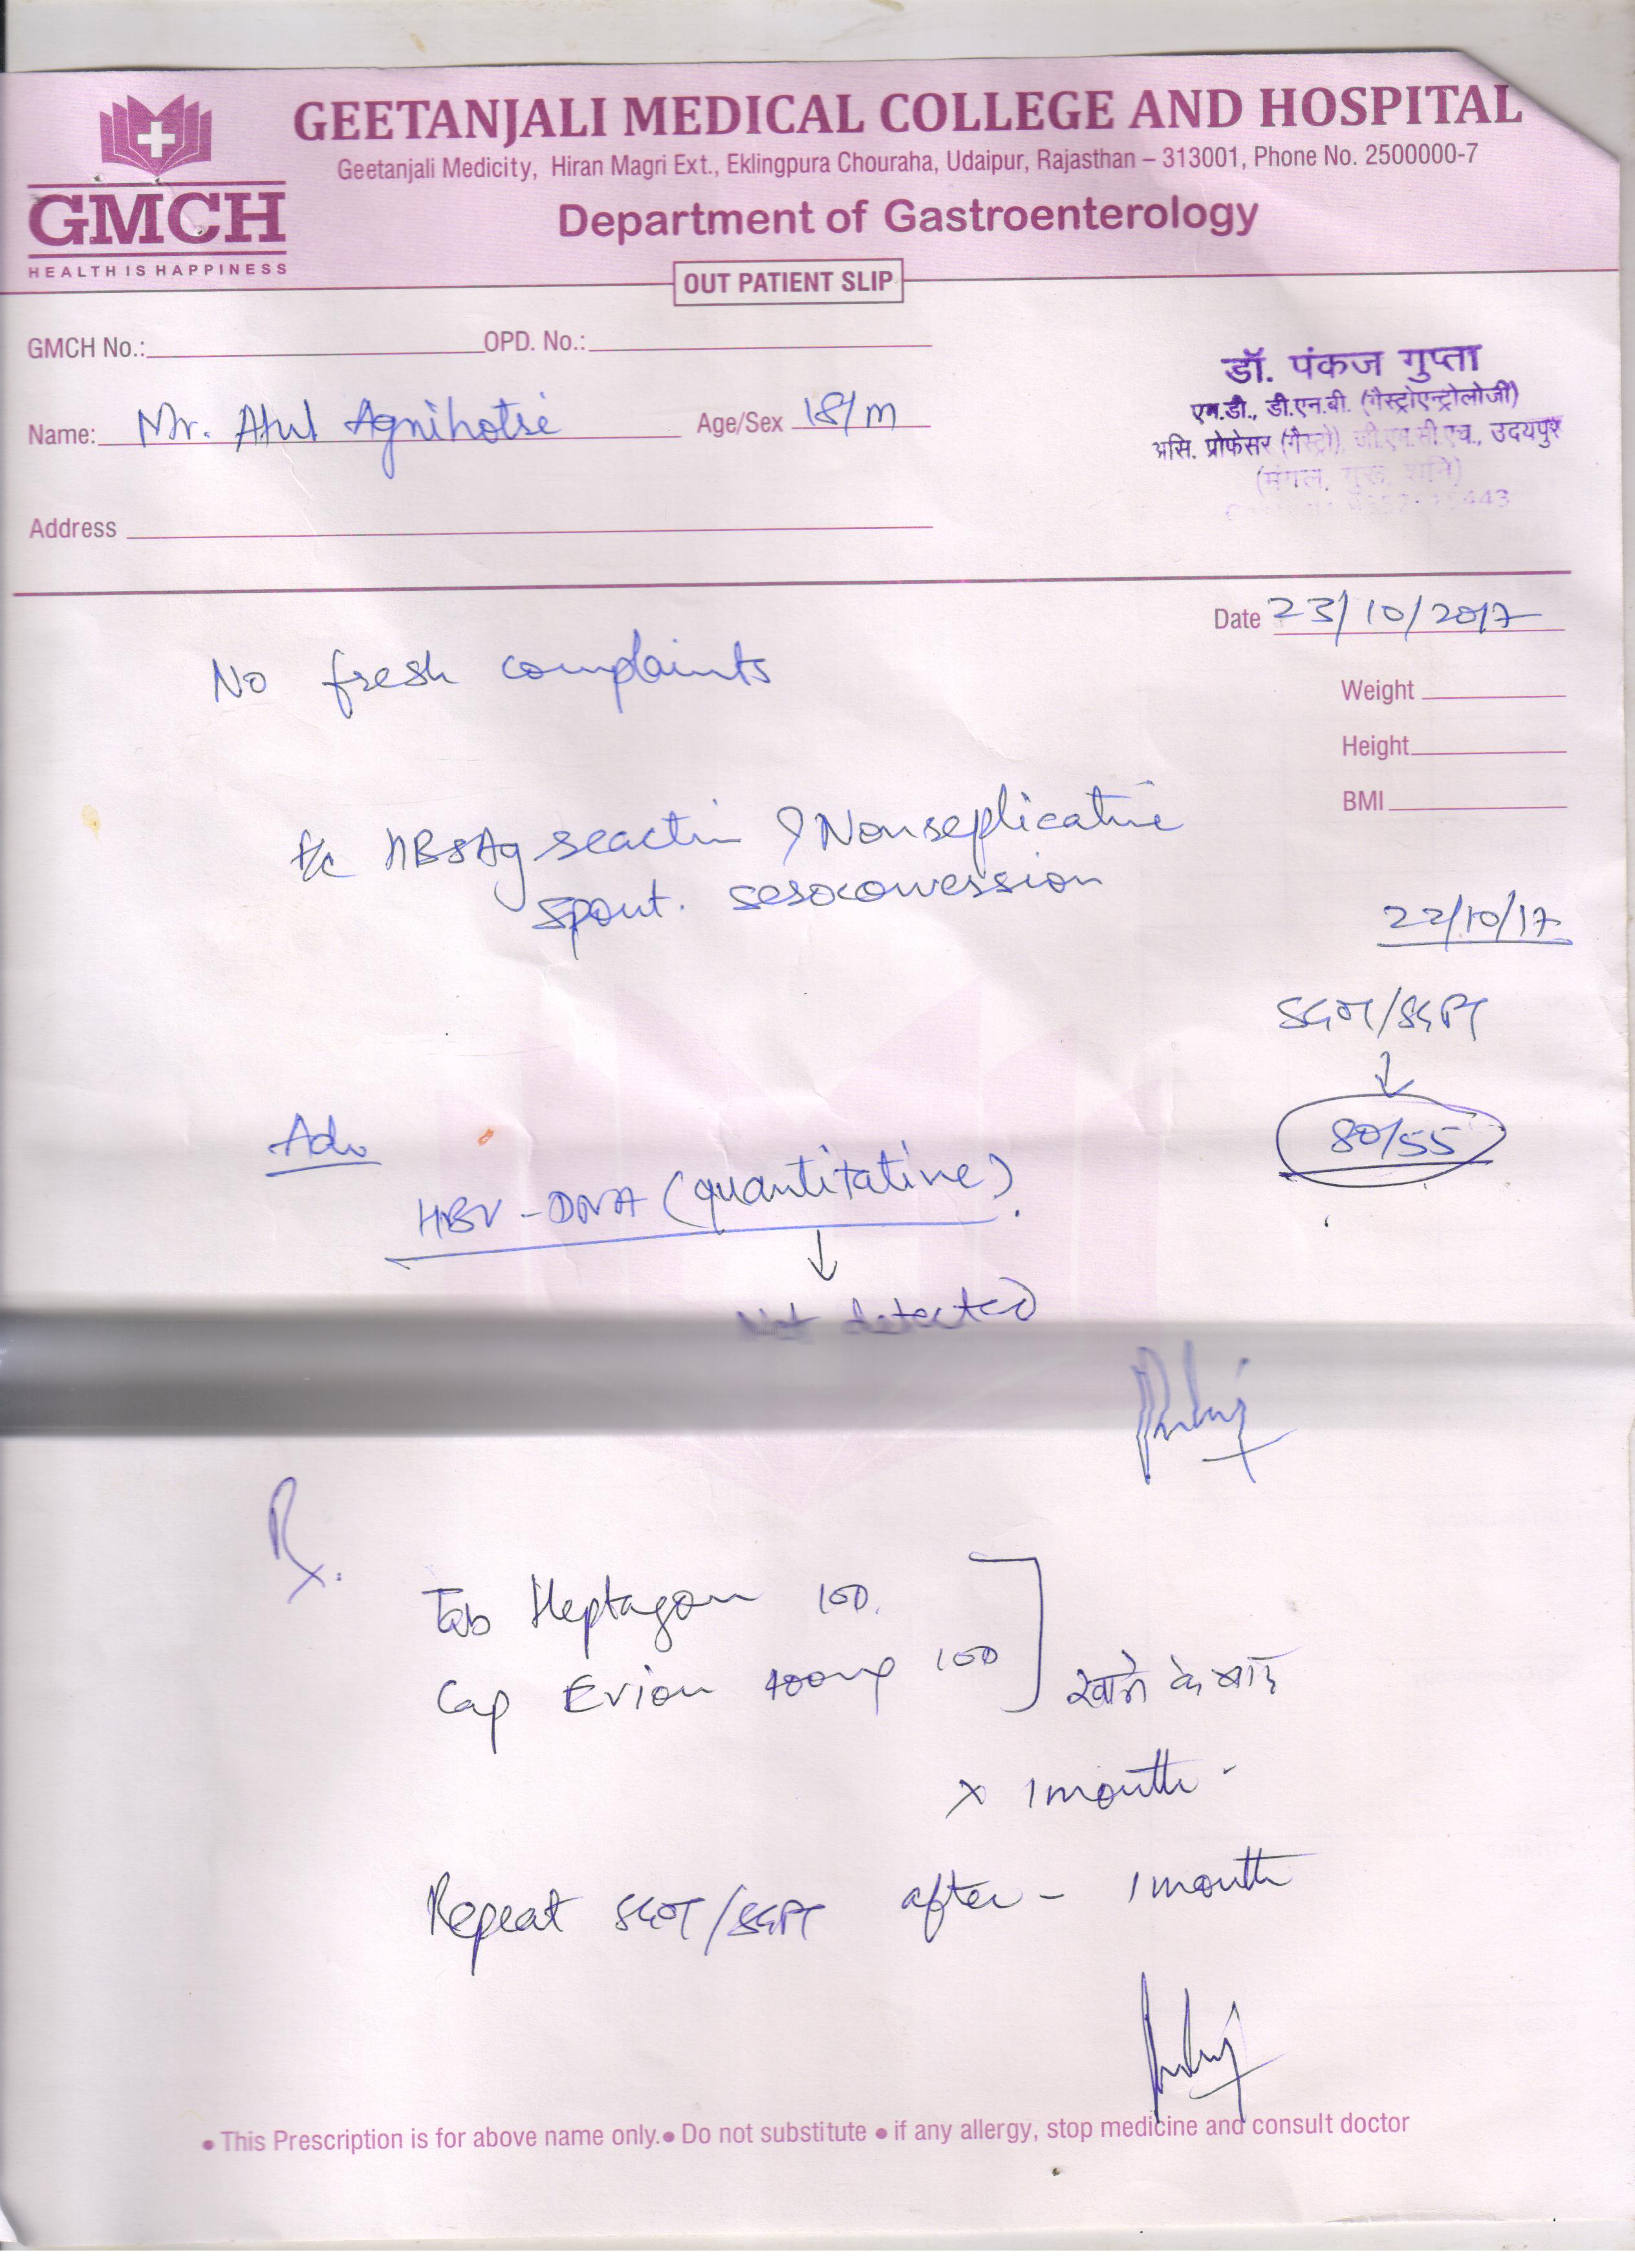 GEETANJALI MEDICAL COLLEGE AND HOSPITAL
Geetanjali Medicity, Hiran Magri Ext., Eklingpura Chouraha, Udaipur, Rajasthan – 313001, Phone No. 2500000-7
GMCH
HEALTH IS HAPPINESS
Department of Gastroenterology
OUT PATIENT SLIP
GMCH No.: OPD. No.:
Name: Mr. Atul Agnihotri Age/Sex 18/M
Address
डॉ. पंकज गुप्ता
एम.डी., डी.एन.बी. (गैस्ट्रोएन्ट्रोलोजी)
असि. प्रोफेसर (गैस्ट्रो) जी.एम.सी.एच., उदयपुर
(मंगल, गुरू, शनि)
Date 23/10/2017
Weight
Height
BMI
No fresh complaints
HBsAg reactive Nonreplicative
spont. seroconversion
22/10/17
SGOT/SGPT
↓
80/55
Adv
HBV-DNA (quantitative).
↓
Not detected
Rx.
Tab Heptagon 1OD.
Cap Evion 400mg 1OD
खाने के बाद
x 1 month -
Repeat SGOT/SGPT after - 1 month
• This Prescription is for above name only. • Do not substitute • if any allergy, stop medicine and consult doctor